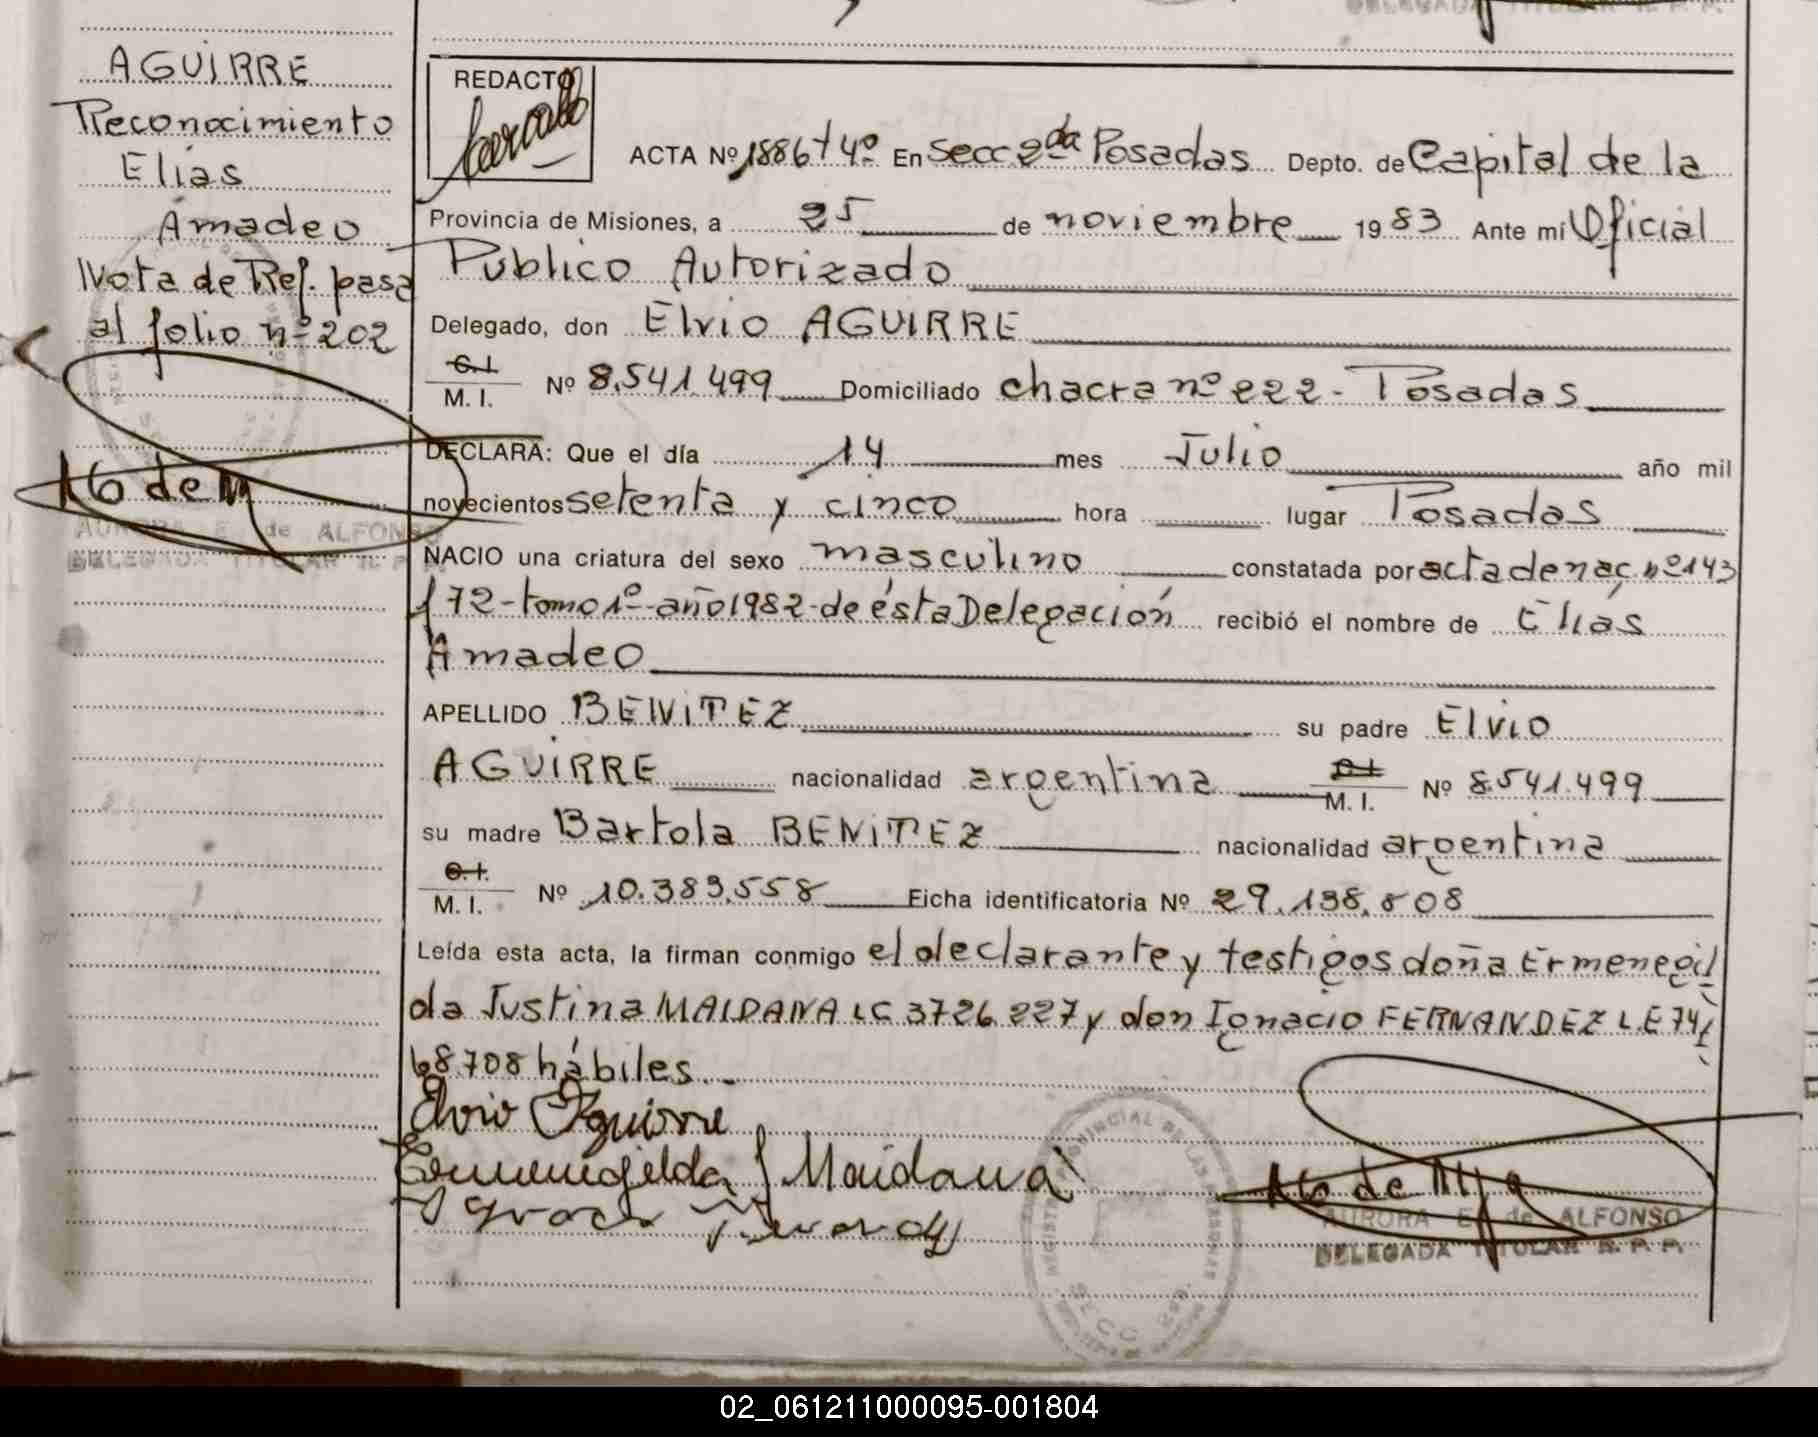 AGUIRRE
Reconocimiento
Elias
Amadeo
Nota de Ref. pasa
al folio nº 202
AURORA E. de ALFONSO
DELEGADA TITULAR R. P. P.
REDACTO
ACTA Nº 1886 t 4º En Secc 2da Posadas Depto. de Capital de la
Provincia de Misiones, a 25 de noviembre 1983 Ante mi Oficial
Público Autorizado
Delegado, don Elvio AGUIRRE
C.I. M. I. Nº 8.541.499 Domiciliado chacra nº 222 - Posadas
DECLARA: Que el día 14 mes Julio año mil
novecientos setenta y cinco hora lugar Posadas
NACIO una criatura del sexo masculino constatada por acta de nac. nº 143
f 72 - tomo 1º - año 1982 - de ésta Delegación recibió el nombre de Elias
Amadeo
APELLIDO BENITEZ su padre Elvio
AGUIRRE nacionalidad argentina M. I. Nº 8.541.499
su madre Bartola BENITEZ nacionalidad argentina
C.I. M. I. Nº 10.383.558 Ficha identificatoria Nº 29.138.808
Leída esta acta, la firman conmigo el declarante y testigos doña Ermenegil
da Justina MAIDANA LC 3726.227 y don Ignacio FERNANDEZ L.E 74
68708 hábiles. -
Elvio Aguirre
Ermenegilda J Maidana
AURORA E. de ALFONSO
DELEGADA TITULAR R. P. P.
02_061211000095-001804